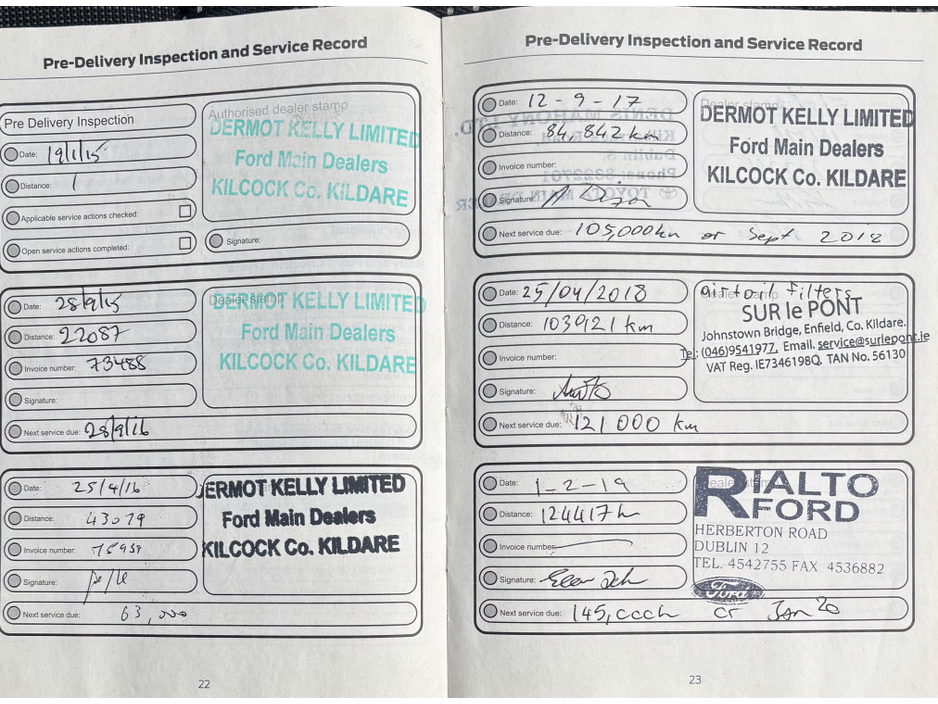 Pre-Delivery Inspection and Service Record
Pre Delivery Inspection
Date: 19/1/15
Distance: 1
Applicable service actions checked:
Open service actions completed:
Authorised dealer stamp
DERMOT KELLY LIMITED
Ford Main Dealers
KILCOCK Co. KILDARE
Signature:
Date: 28/9/15
Distance: 22087
Invoice number: 73488
Signature:
Dealer stamp
DERMOT KELLY LIMITED
Ford Main Dealers
KILCOCK Co. KILDARE
Next service due: 28/9/16
Date: 25/4/16
Distance: 43079
Invoice number:
Signature:
ERMOT KELLY LIMITED
Ford Main Dealers
KILCOCK Co. KILDARE
Next service due: 63,000
22
Pre-Delivery Inspection and Service Record
Date: 12-9-17
Distance: 84,842 km
Invoice number:
Signature:
Dealer stamp
DERMOT KELLY LIMITED
Ford Main Dealers
KILCOCK Co. KILDARE
Next service due: 105,000km or Sept 2018
Date: 25/04/2018
Distance: 103912 1 km
Invoice number:
Signature:
Dealer stamp
air+oil filters
SUR le PONT
Johnstown Bridge, Enfield, Co. Kildare.
Tel: (046)9541977, Email. service@surlepont.ie
VAT Reg. IE7346198Q. TAN No. 56130
Next service due: 121 000 km
Date: 1-2-19
Distance: 124417
Invoice number:
Signature:
Dealer stamp
RIALTO
FORD
HERBERTON ROAD
DUBLIN 12
TEL. 4542755 FAX 4536882
Ford
Next service due: 145,000 or Jan 20
23